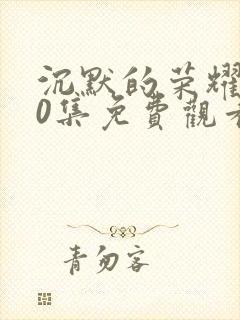 沉默的荣耀
0集免費觀看
青勿客